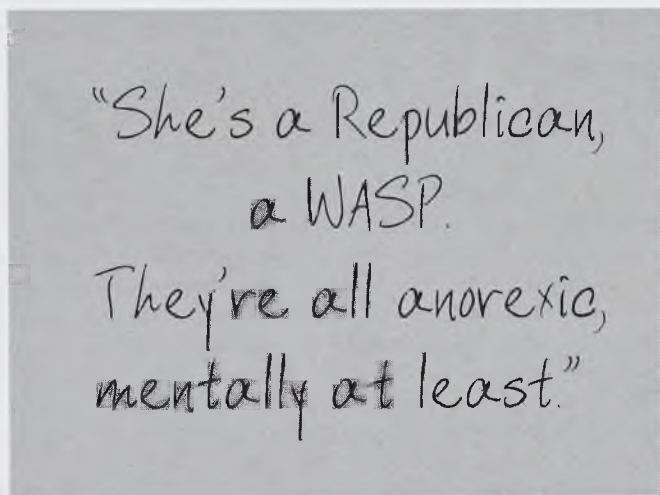 “She's a Republican,
a WASP.
They're all anorexic,
mentally at least.”